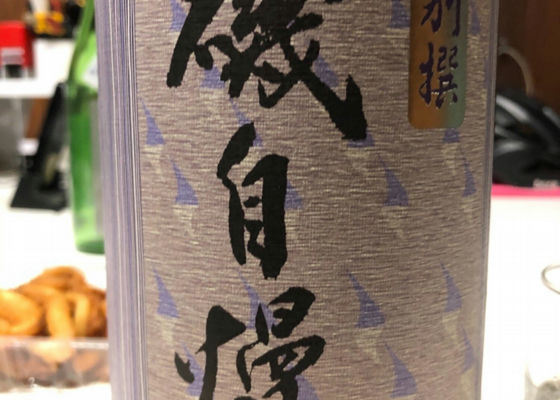 別撰
磯自慢